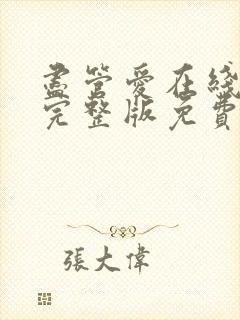 盡管愛在綫
完整版免費
張大偉